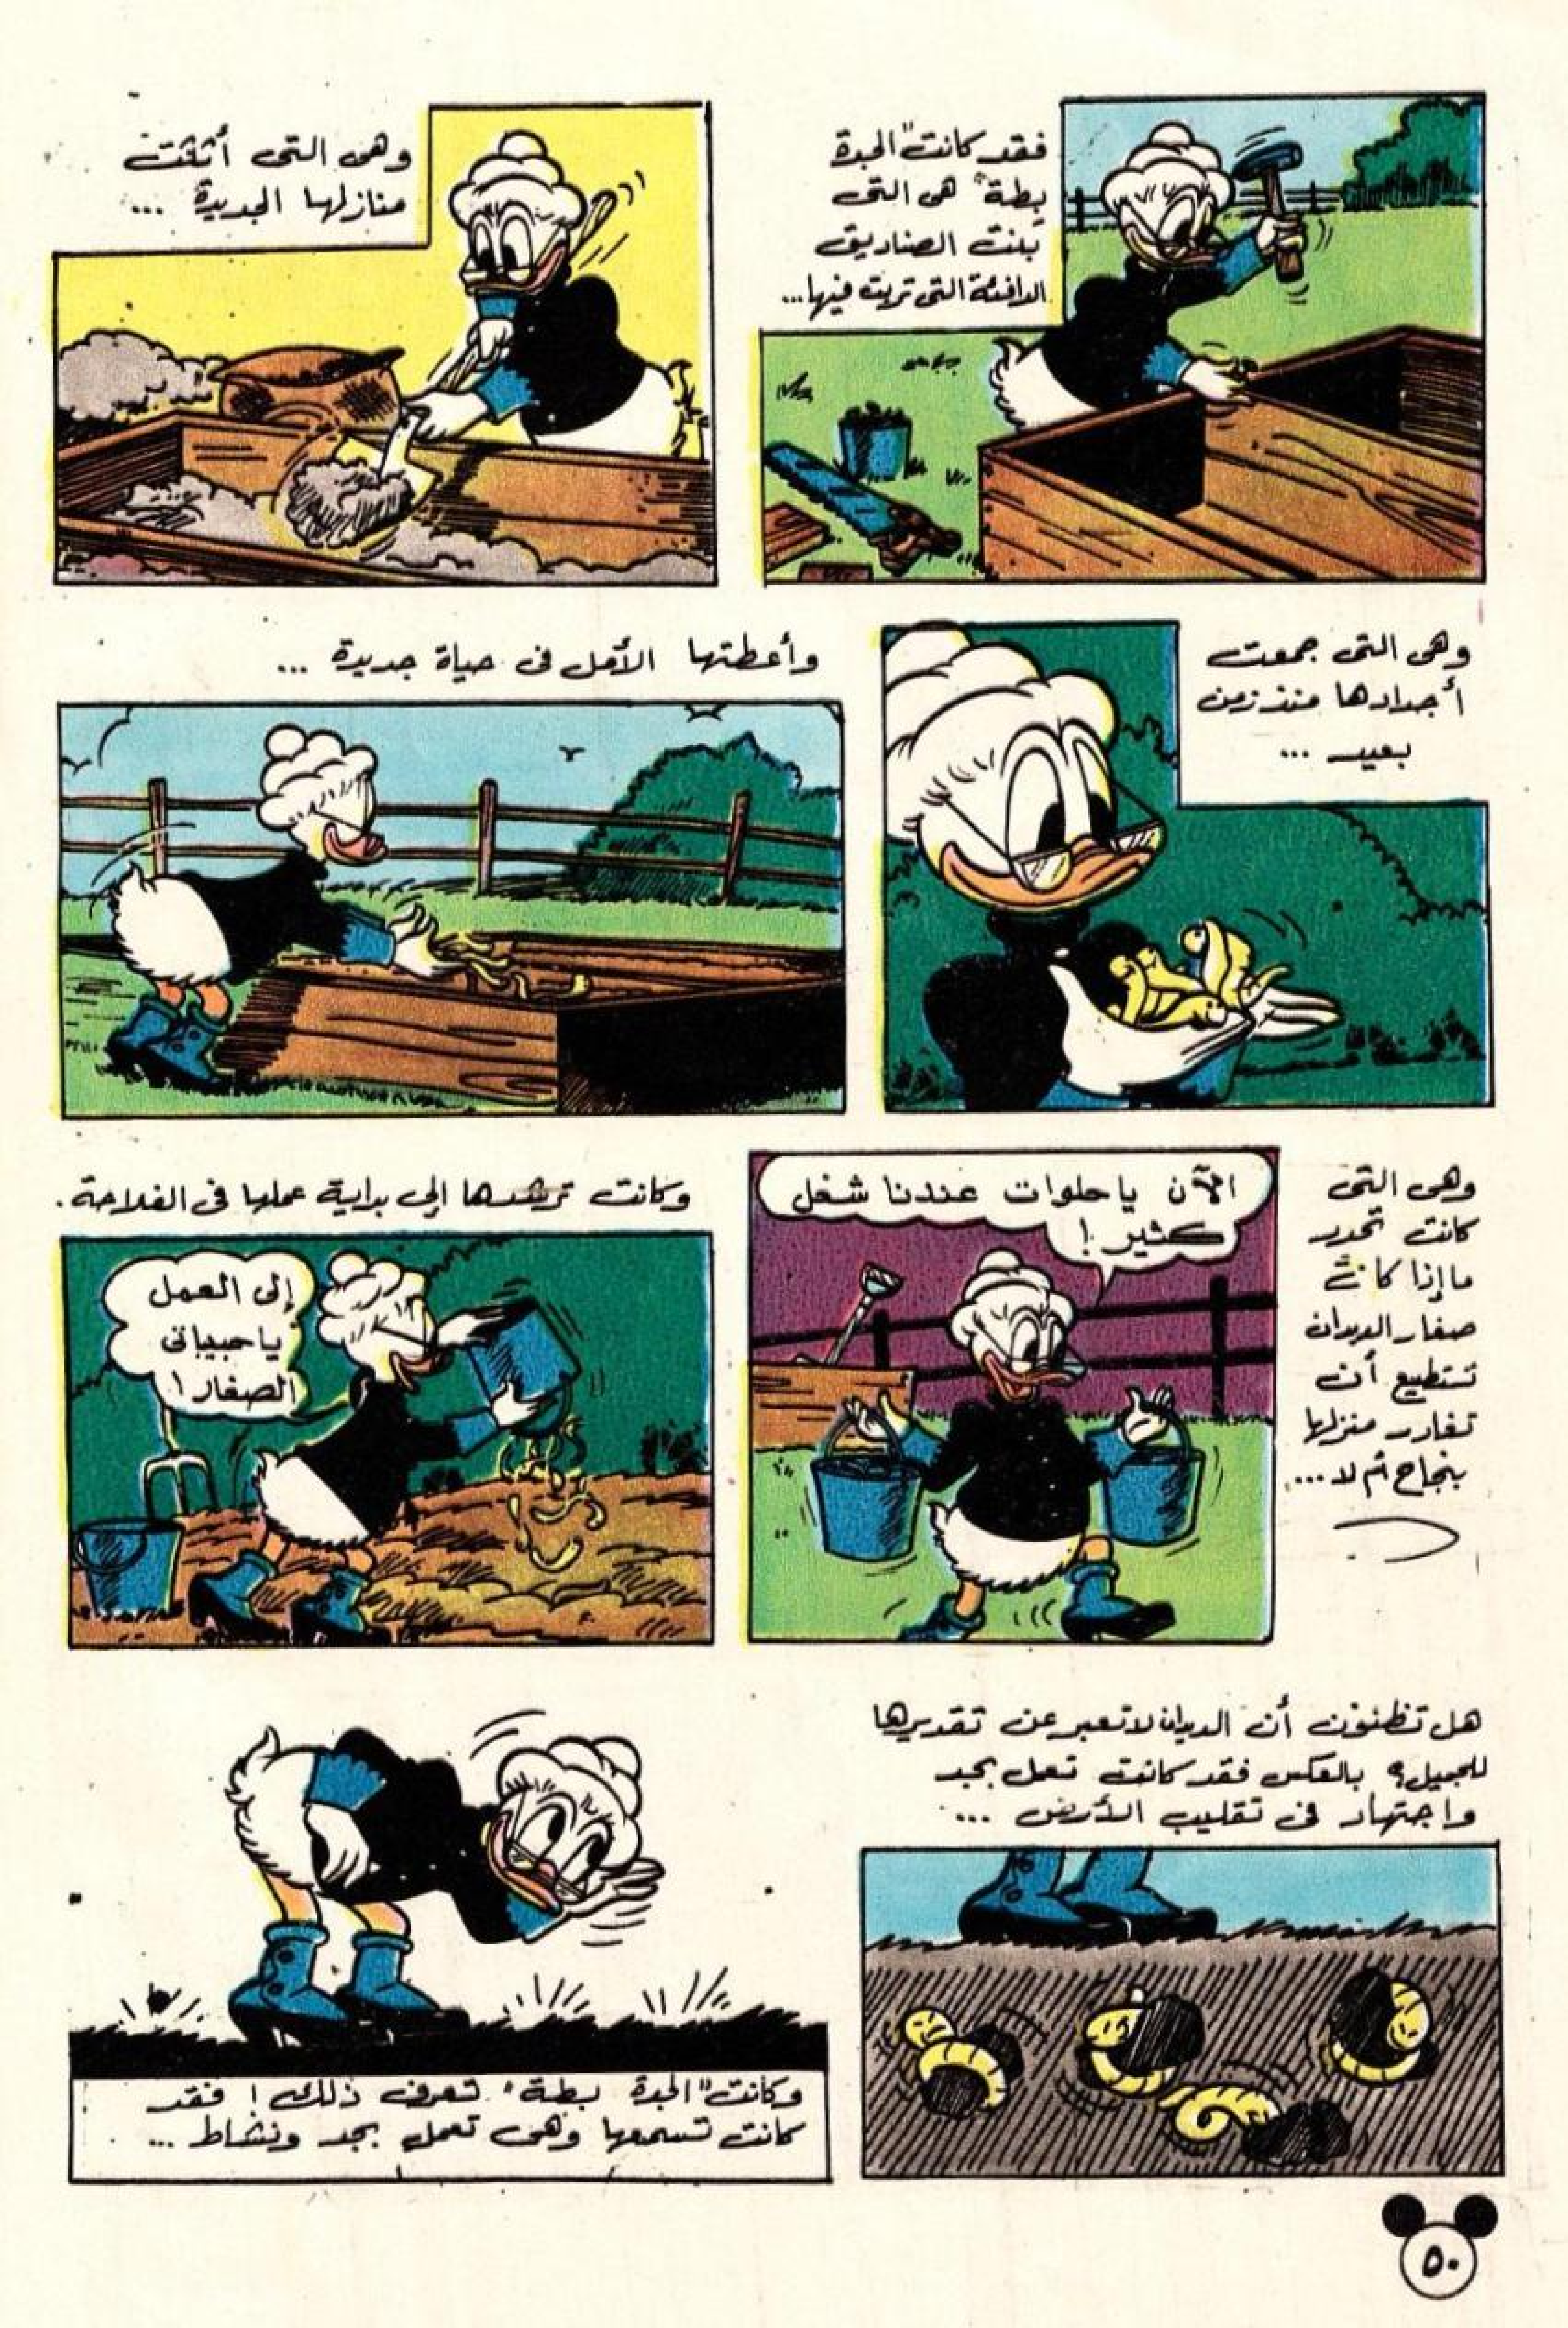 فقد كانت "الجدة
بطة" هى التى
بنت الصناديق
الدافئة التى تربت فيها...
وهى التى أثثت
منازلها الجديدة ...
وهى التى جمعت
أجدادها منذ زمن
بعيد ...
وأعطتها الأمل فى حياة جديدة ...
وهى التى
كانت تحدد
ما إذا كانت
صغار الديدان
تستطيع أن
تغادر منزلها
بنجاح أم لا ...
الآن يا حلوات عندنا شغل
كثير !
وكانت ترشدها إلى بداية عملها فى الفلاحة .
إلى العمل
يا حبيباتى
الصغار !
هل تظنون أن الديدان لا تعبر عن تقديرها
للجميل ؟ بالعكس فقد كانت تعمل بجد
واجتهاد فى تقليب الأرض ...
وكانت "الجدة بطة" تعرف ذلك ! فقد
كانت تسمعها وهى تعمل بجد ونشاط ...
٥٠